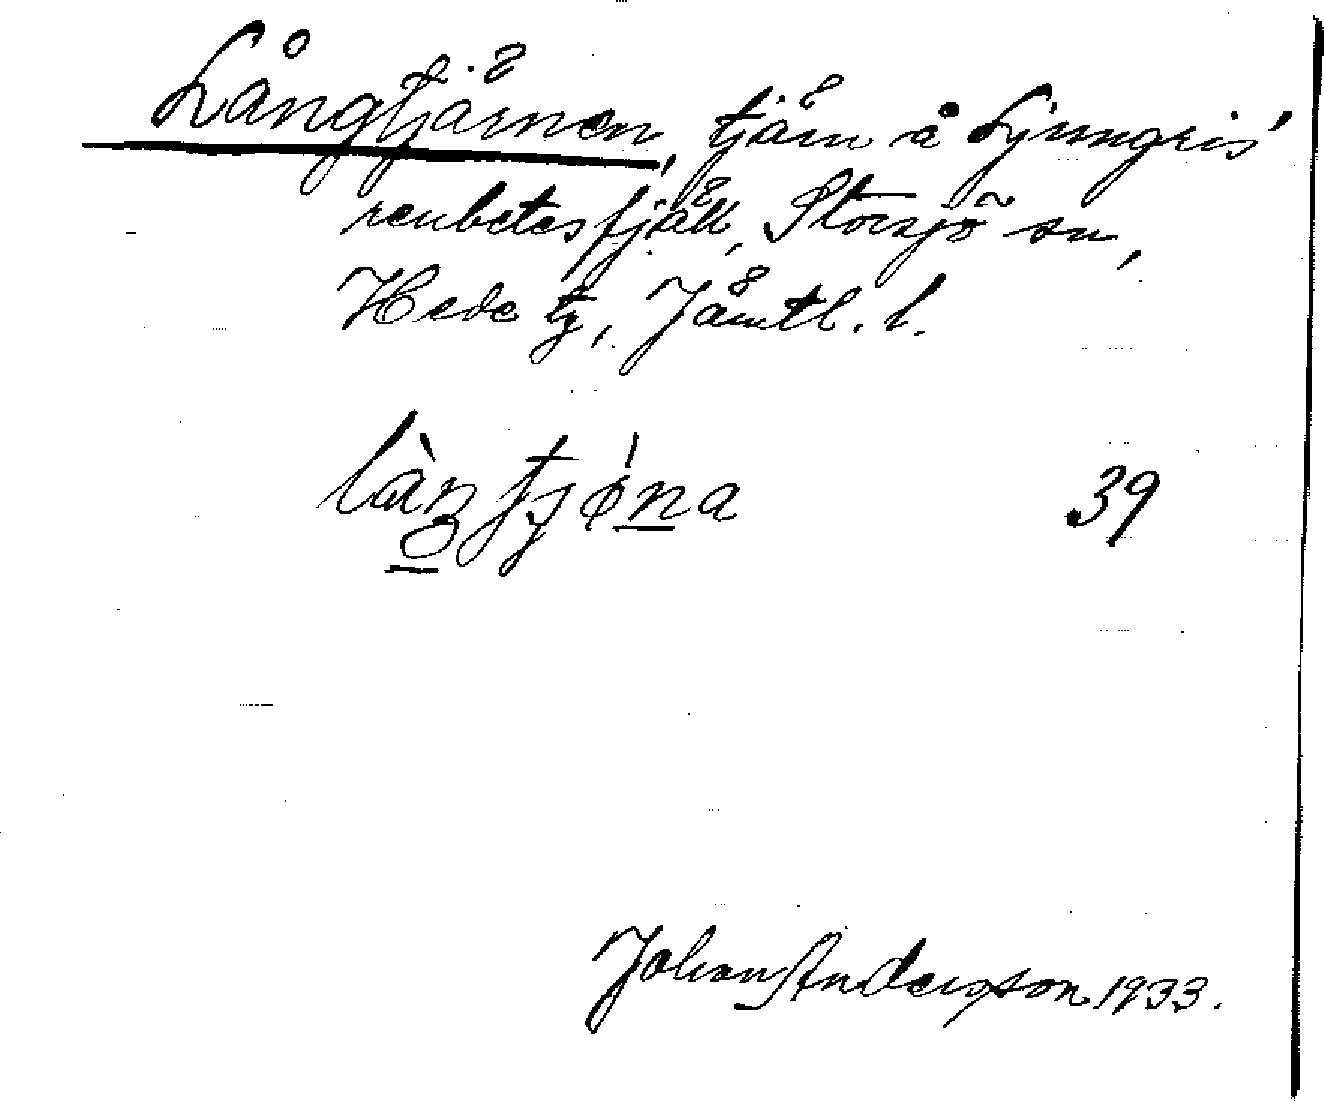 Långtjärnen, tjärn å Ljungris'
renbetesfjäll, Storsjö sn,
Hede tg, Jämtl. l.
39
Johan Anderson 1933.